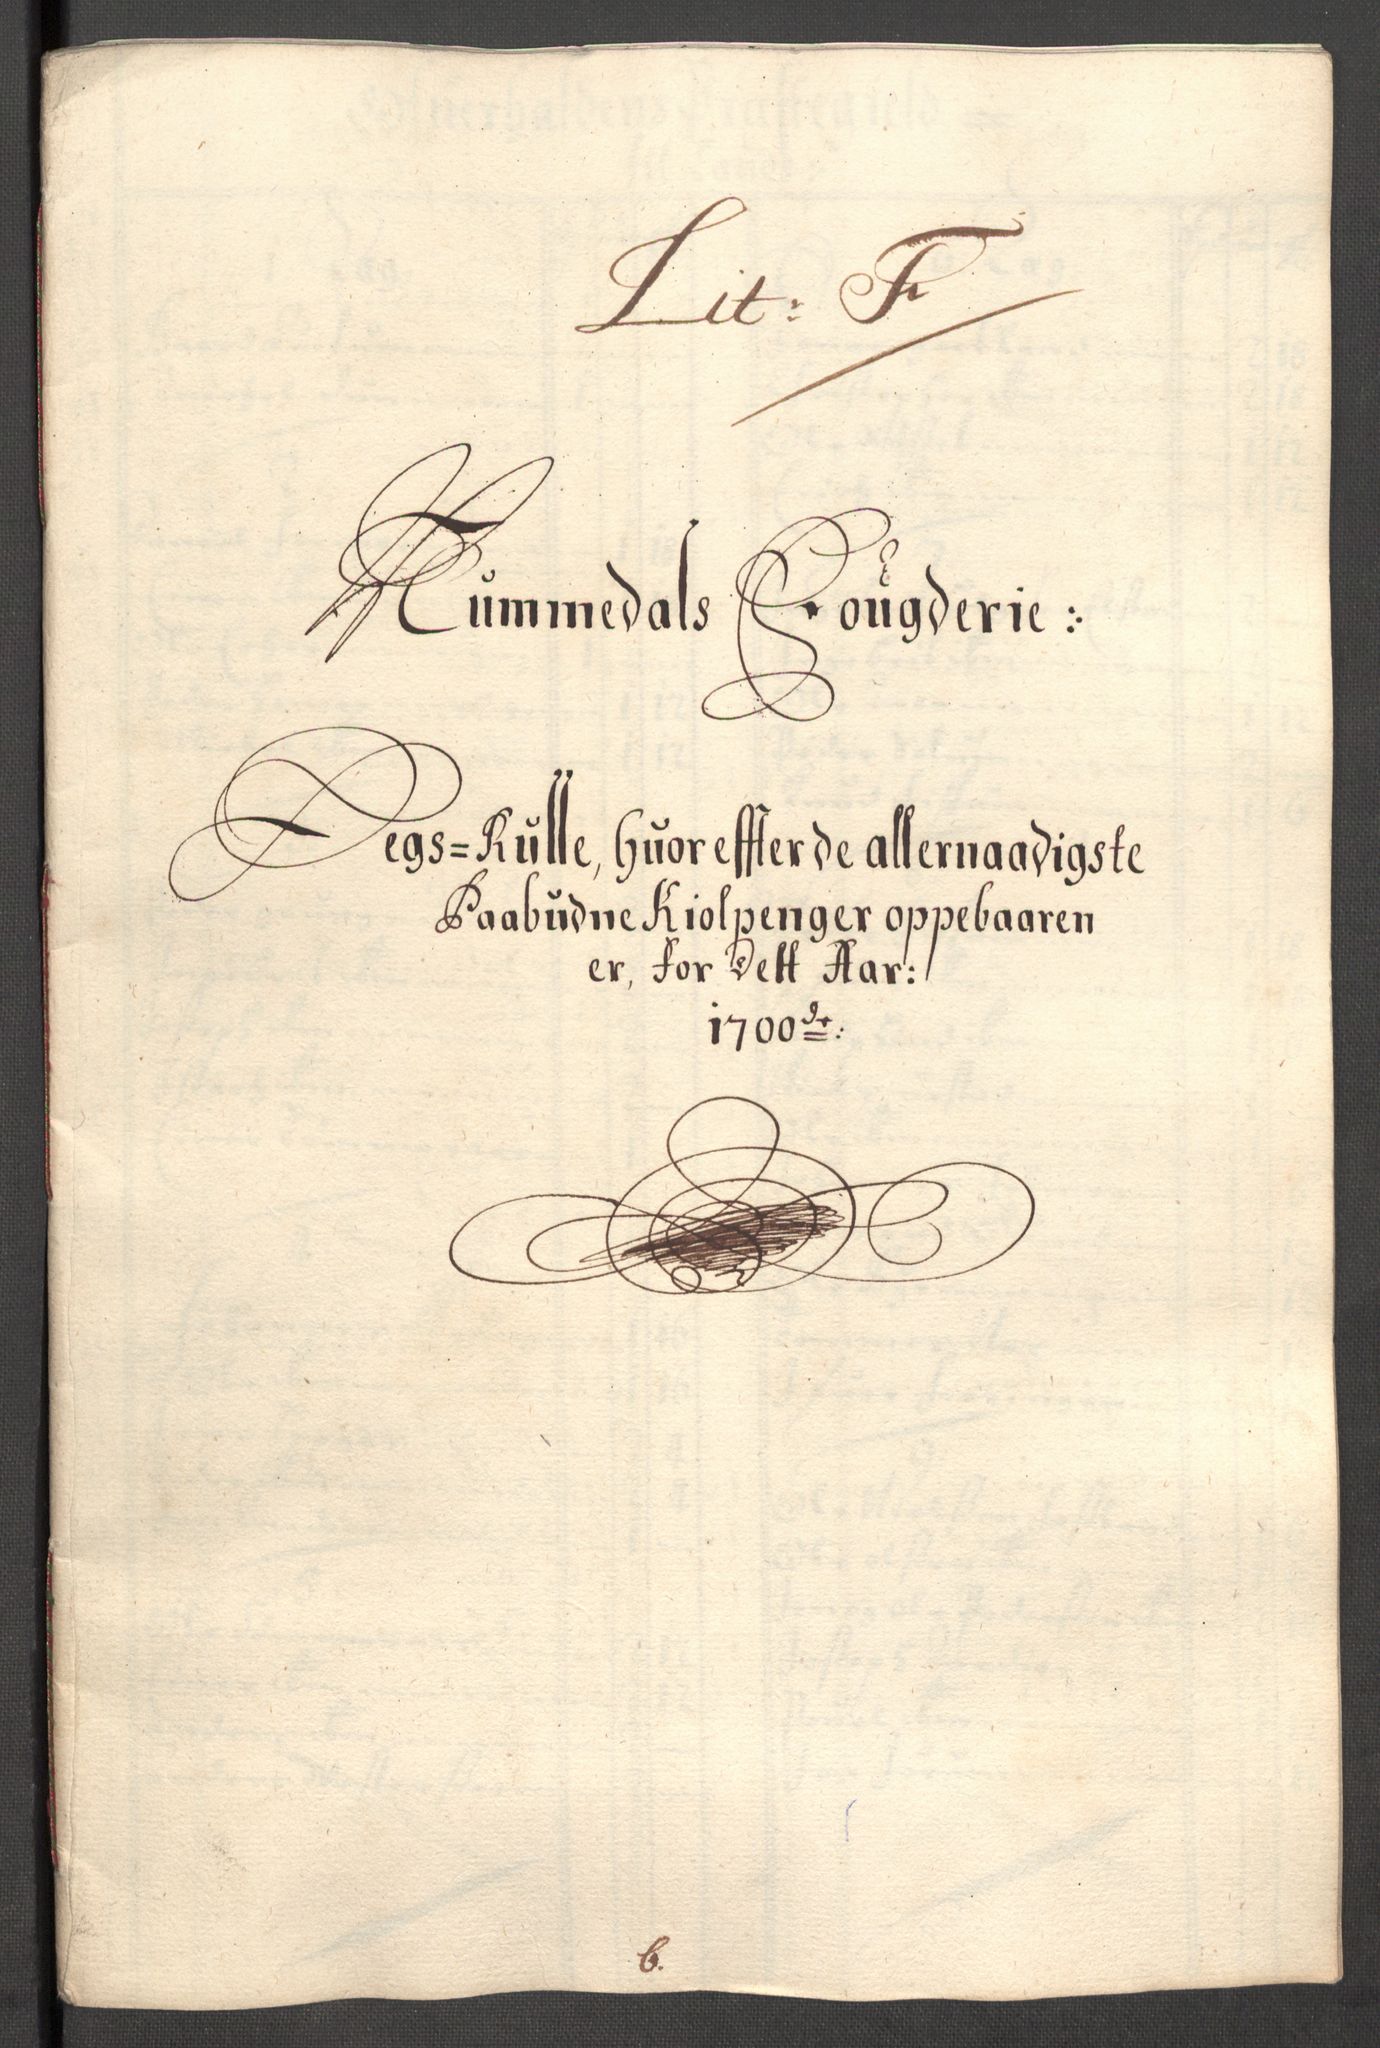 Lit: F
Nummedals Fougderie:
Legs=Rulle, huor effter de allernaadigste
Paabudne Kiolpenger oppebaaren
er, for dett Aar:
1700de:
6.